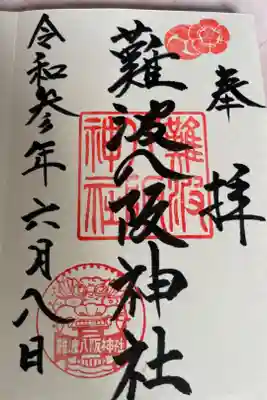 奉拝
難波八阪神社
令和参年六月八日
難波八阪神社
難波八阪神社